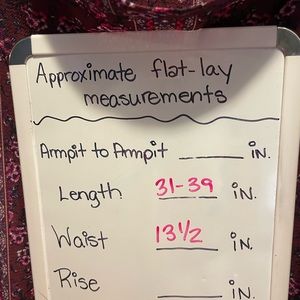 Approximate flat-lay
measurements
Armpit to Armpit ______ IN.
Length 31-39 iN.
Waist 13 1/2 iN.
Rise ______ iN.